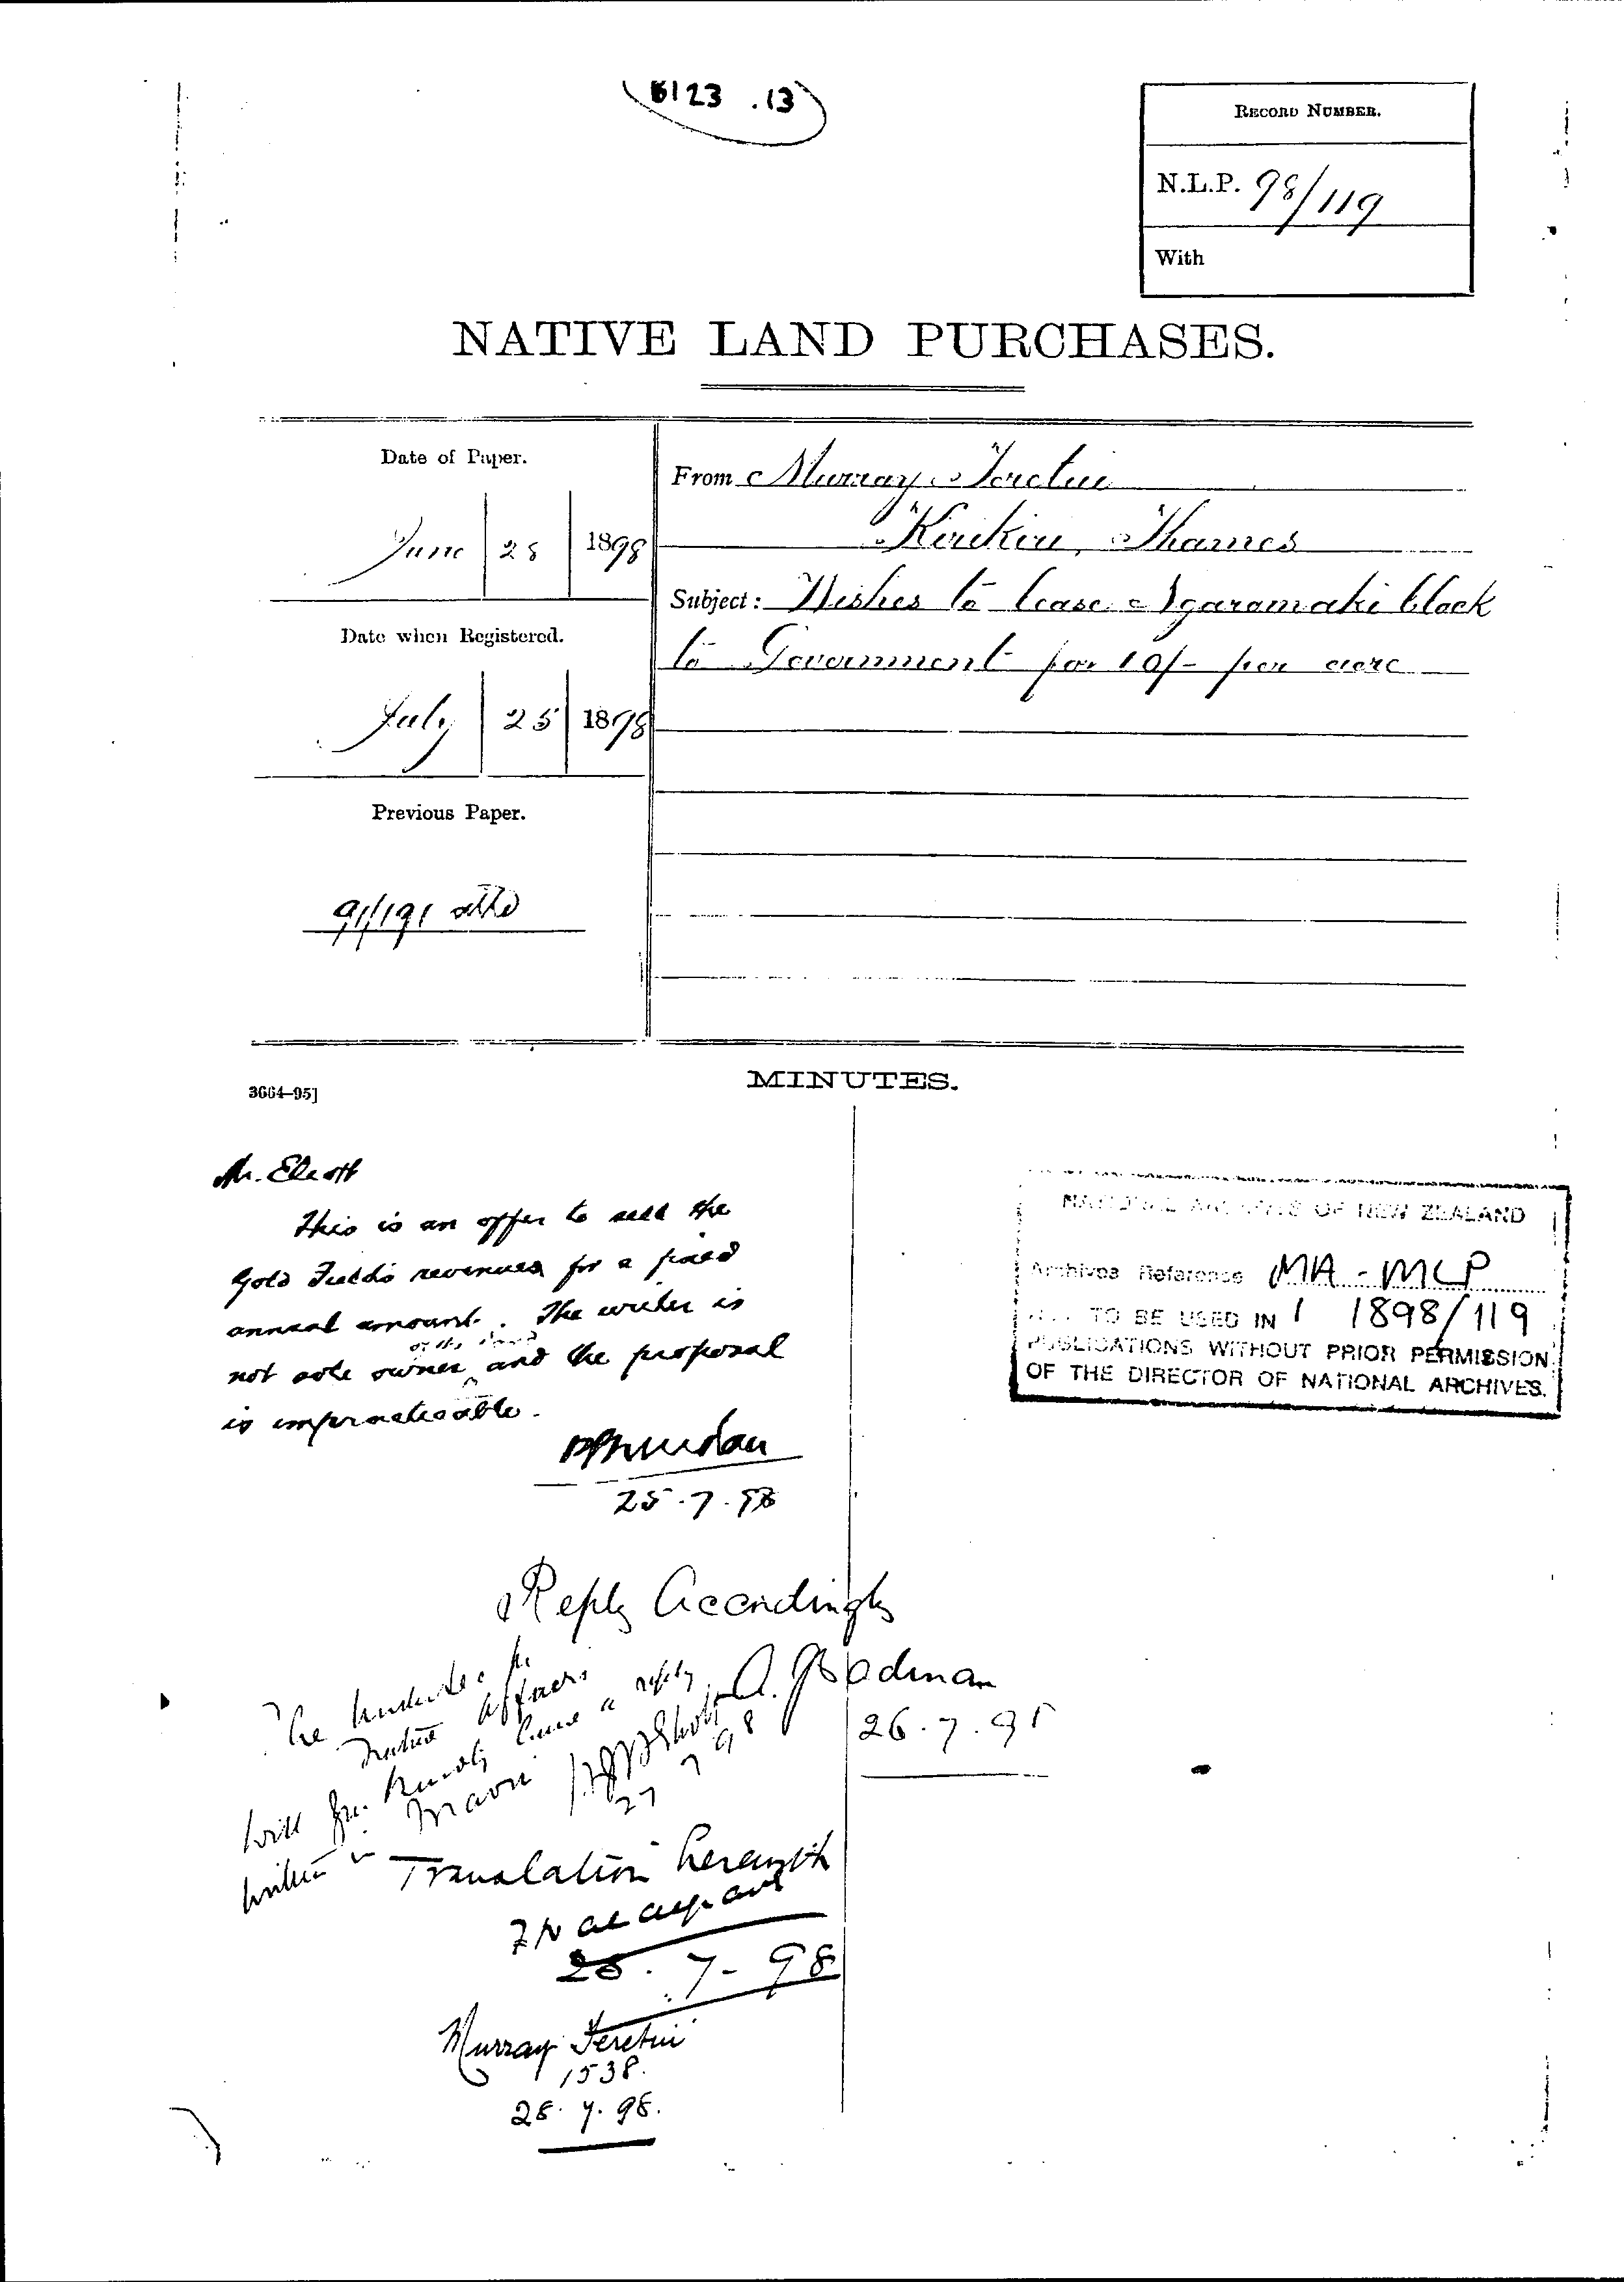 B123 .13
RECORD NUMBER.
N.L.P. 98/119
With
NATIVE LAND PURCHASES.
Date of Paper.
June 28 1898
Date when Registered.
July 25 1898
Previous Paper.
91/191 attd
From Murray Teretui
Kirikiri, Thames
Subject: Wishes to lease Ngaromaki block
to Government for 10/- per acre
3664–95]
MINUTES.
Mr. Eliott
This is an offer to sell the
Gold Fields revenues for a fixed
annual amount. The writer is
of the land
not sole owner and the proposal
is impracticable.
25.7.98
Reply Accordingly
A. Goodman
26.7.98
The Under Sec for
Native Affairs
will you kindly have a reply
written in Maori
27 7 98
Translation herewith
28.7-98
Murray Teretui
1538.
28.7.98.
NATIONAL ARCHIVES OF NEW ZEALAND
Archives Reference MA - MLP
NOT TO BE USED IN 1 1898/119
PUBLICATIONS WITHOUT PRIOR PERMISSION
OF THE DIRECTOR OF NATIONAL ARCHIVES.